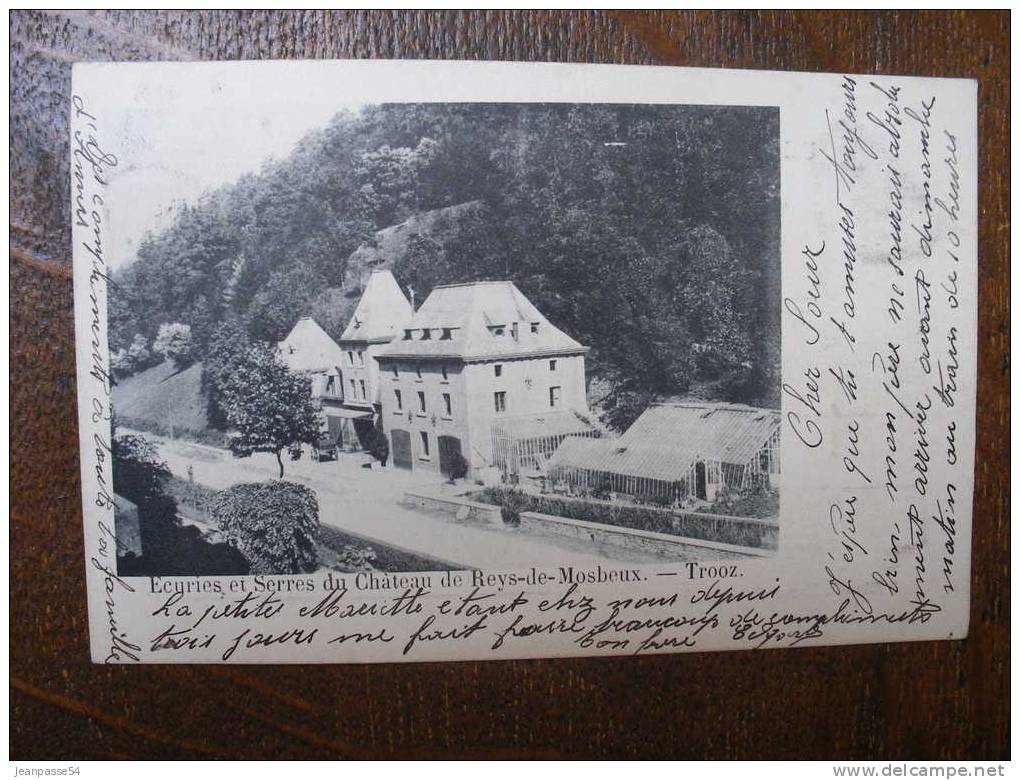 Cher Sœur
J'éspère que tu t'amuses toujours
bien, mon père ne saurait absolu
ment arriver avant dimanche
matin au train de 10 heures
La petite Mariette étant chez nous depuis
trois jours me fait faire beaucoup de compliments
Ton frère
d'Ymus
Les compliments à toute la famille
Ecuries et Serres du Château de Reys-de-Mosbeux. — Trooz.
jeanpasse54
delcampe.net